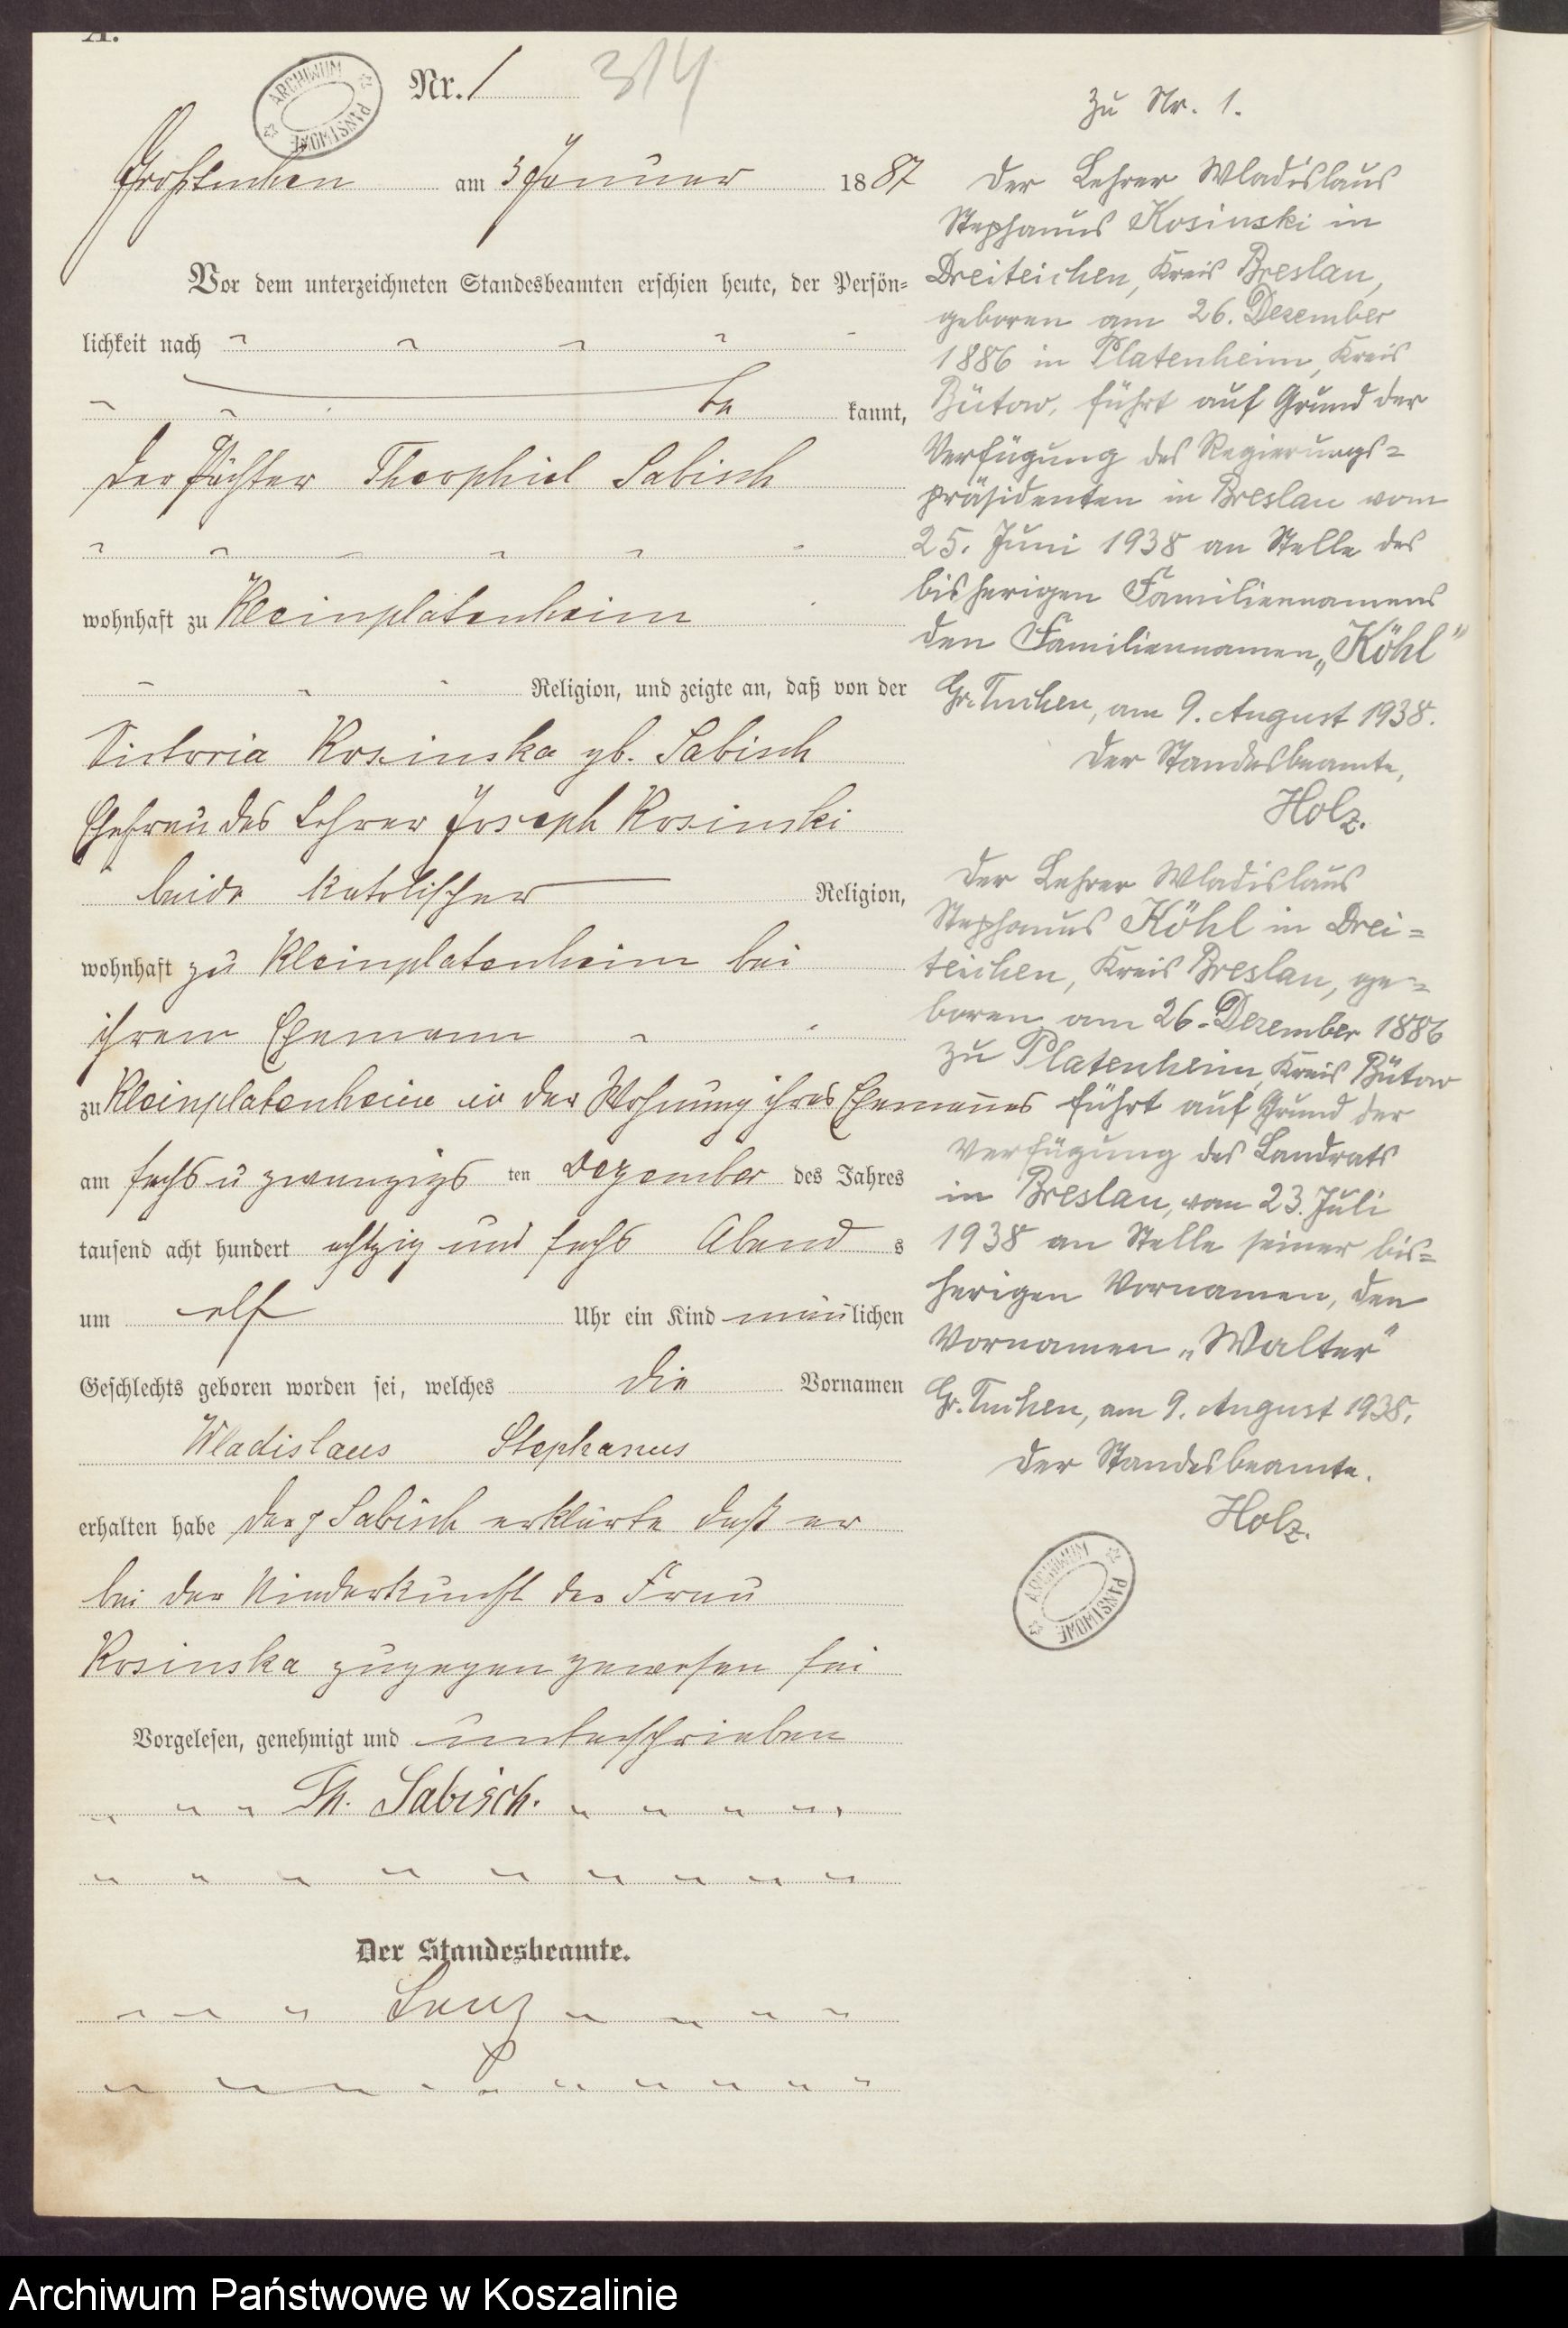 A.
ARCHIWUM PAŃSTWOWE
Nr. 1
314
Großtuchen am 3 Januar 1887
Vor dem unterzeichneten Standesbeamten erschien heute, der Persön=
lichkeit nach
be kannt,
der Pächter Theophiel Sabisch
wohnhaft zu Kleinplatenheim
Religion, und zeigte an, daß von der
Victoria Kosinska gb. Sabisch
Ehefrau des Lehrer Joseph Kosinski
beide katolischer Religion,
wohnhaft zu Kleinplatenheim bei
ihrem Ehemann
zu Kleinplatenheim in der Wohnung ihres Ehemannes
am sechs u zwanzigs ten Dezember des Jahres
tausend acht hundert achtzig und sechs Abend s
um elf Uhr ein Kind männlichen
Geschlechts geboren worden sei, welches die Vornamen
Wladislaus Stephanus
erhalten habe der Sabisch erklärte daß er
bei der Niederkunft der Frau
Kosinska zugegen gewesen sei
Vorgelesen, genehmigt und unterschrieben
Th. Sabisch.
Der Standesbeamte.
Lenz
Zu Nr. 1.
Der Lehrer Wladislaus
Stephanus Kosinski in
Dreiteichen, Kreis Breslau,
geboren am 26. Dezember
1886 in Platenheim, Kreis
Bütow, führt auf Grund der
Verfügung des Regierungs=
präsidenten in Breslau vom
25. Juni 1938 an Stelle des
bisherigen Familiennamens
den Familiennamen „Köhl"
Gr. Tuchen, am 9. August 1938.
Der Standesbeamte,
Holz.
Der Lehrer Wladislaus
Stephanus Köhl in Drei=
teichen, Kreis Breslau, ge=
boren am 26. Dezember 1886
zu Platenheim, Kreis Bütow
führt auf Grund der
Verfügung des Landrats
in Breslau, vom 23. Juli
1938 an Stelle seiner bis=
herigen Vornamen, den
Vornamen „Walter"
Gr. Tuchen, am 9. August 1938.
Der Standesbeamte.
Holz.
ARCHIWUM PAŃSTWOWE
Archiwum Państwowe w Koszalinie